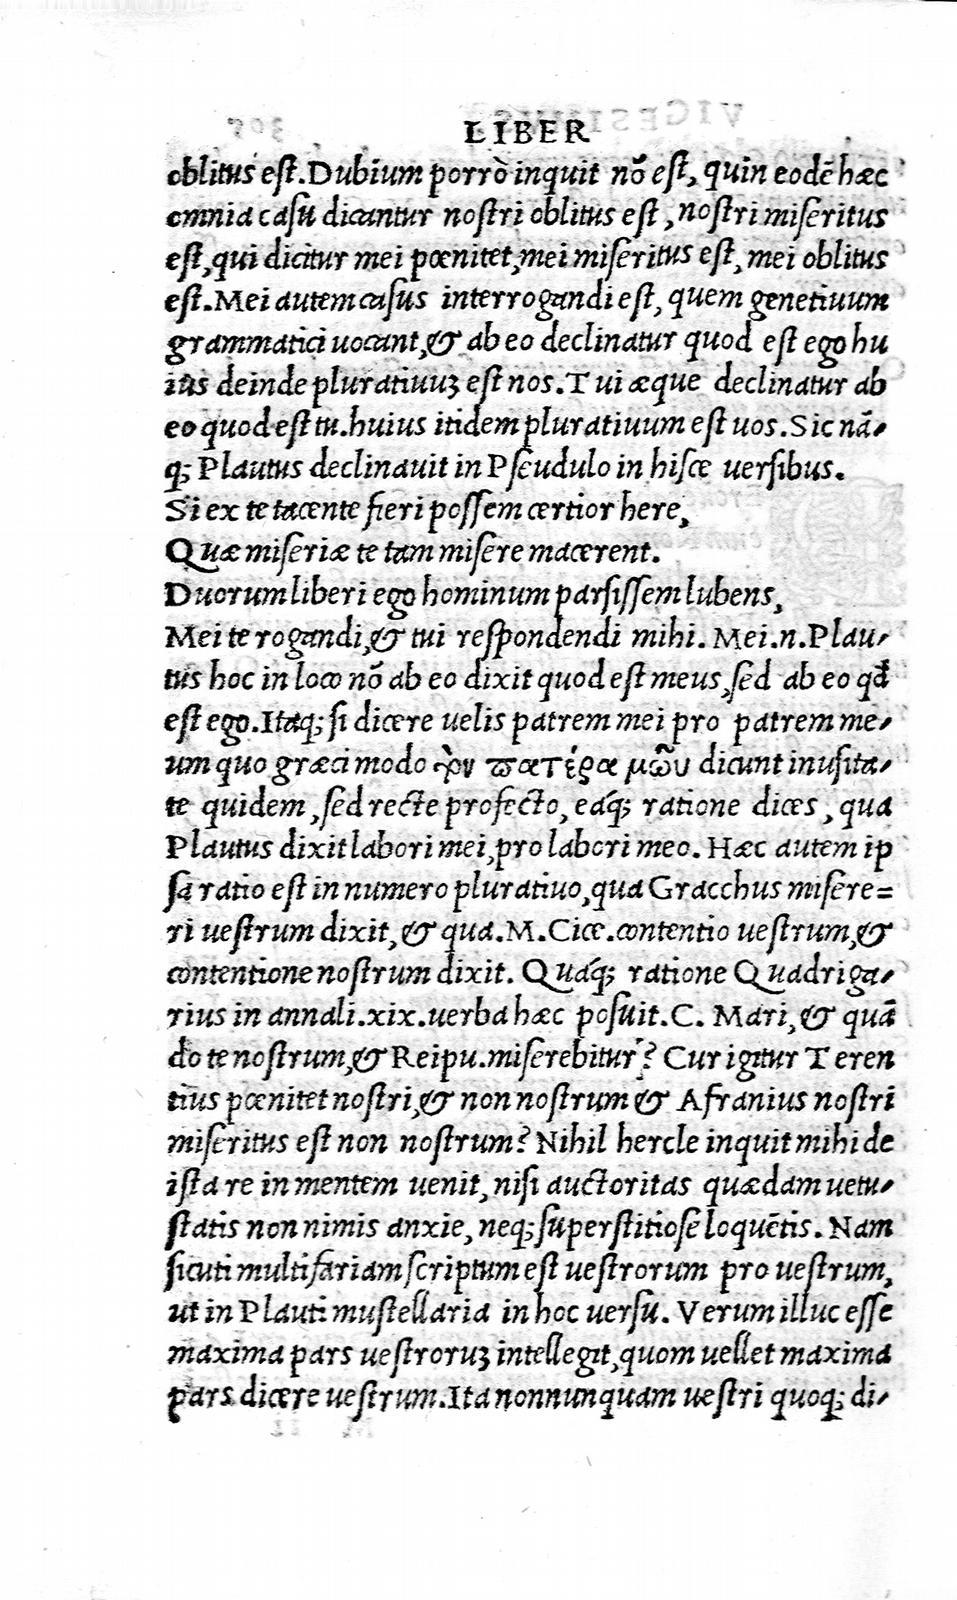 LIBER
oblitus est. Dubium porrò inquit nõ est, quin eodẽ hæc
omnia casu dicantur nostri oblitus est, nostri miseritus
est, qui dicitur mei pœnitet, mei miseritus est, mei oblitus
est. Mei autem casus interrogandi est, quem genetiuum
grammatici uocant, & ab eo declinatur quod est ego hu
ius deinde pluratiuuȝ est nos. Tui æque declinatur ab
eo quod est tu. huius itidem pluratiuum est uos. Sic nã-
q; Plautus declinauit in Pseudulo in hisce uersibus.
Si ex te tacente fieri possem certior here,
Quæ miseriæ te tam misere macerent.
Duorum liberi ego hominum parsissem lubens,
Mei te rogandi, & tui respondendi mihi. Mei .n. Plau-
tus hoc in loco nõ ab eo dixit quod est meus, sed ab eo qđ
est ego. Itaq; si dicere uelis patrem mei pro patrem me-
um quo græci modo τὸν πατέρα μοῦ dicunt inusita-
te quidem, sed recte profecto, eáq; ratione dices, qua
Plautus dixit labori mei, pro labori meo. Hæc autem ip
sa ratio est in numero pluratiuo, qua Gracchus misere=
ri uestrum dixit, & qua. M. Cice. contentio uestrum, &
contentione nostrum dixit. Quáq; ratione Quadriga-
rius in annali .xix. uerba hæc posuit. C. Mari, & quã
do te nostrum, & Reipu. miserebitur? Cur igitur Teren
tius pœnitet nostri, & non nostrum & Afranius nostri
miseritus est non nostrum? Nihil hercle inquit mihi de
ista re in mentem uenit, nisi auctoritas quædam uetu-
statis non nimis anxie, neq; superstitiose loquẽtis. Nam
sicuti multifariam scriptum est uestrorum pro uestrum,
ut in Plauti mustellaria in hoc uersu. Verum illuc esse
maxima pars uestroruȝ intellegit, quom uellet maxima
pars dicere uestrum. Ita nonnunquam uestri quoq; di-